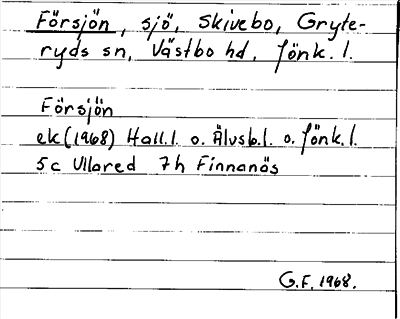 Försjön, sjö, Skivebo, Gryte-
ryds sn, Västbo hd, Jönk. l.
Försjön
ek (1968) Hall.l. o. Älvsb.l. o. Jönk.l.
5c Ullared 7h Finnanäs
G.F. 1968.